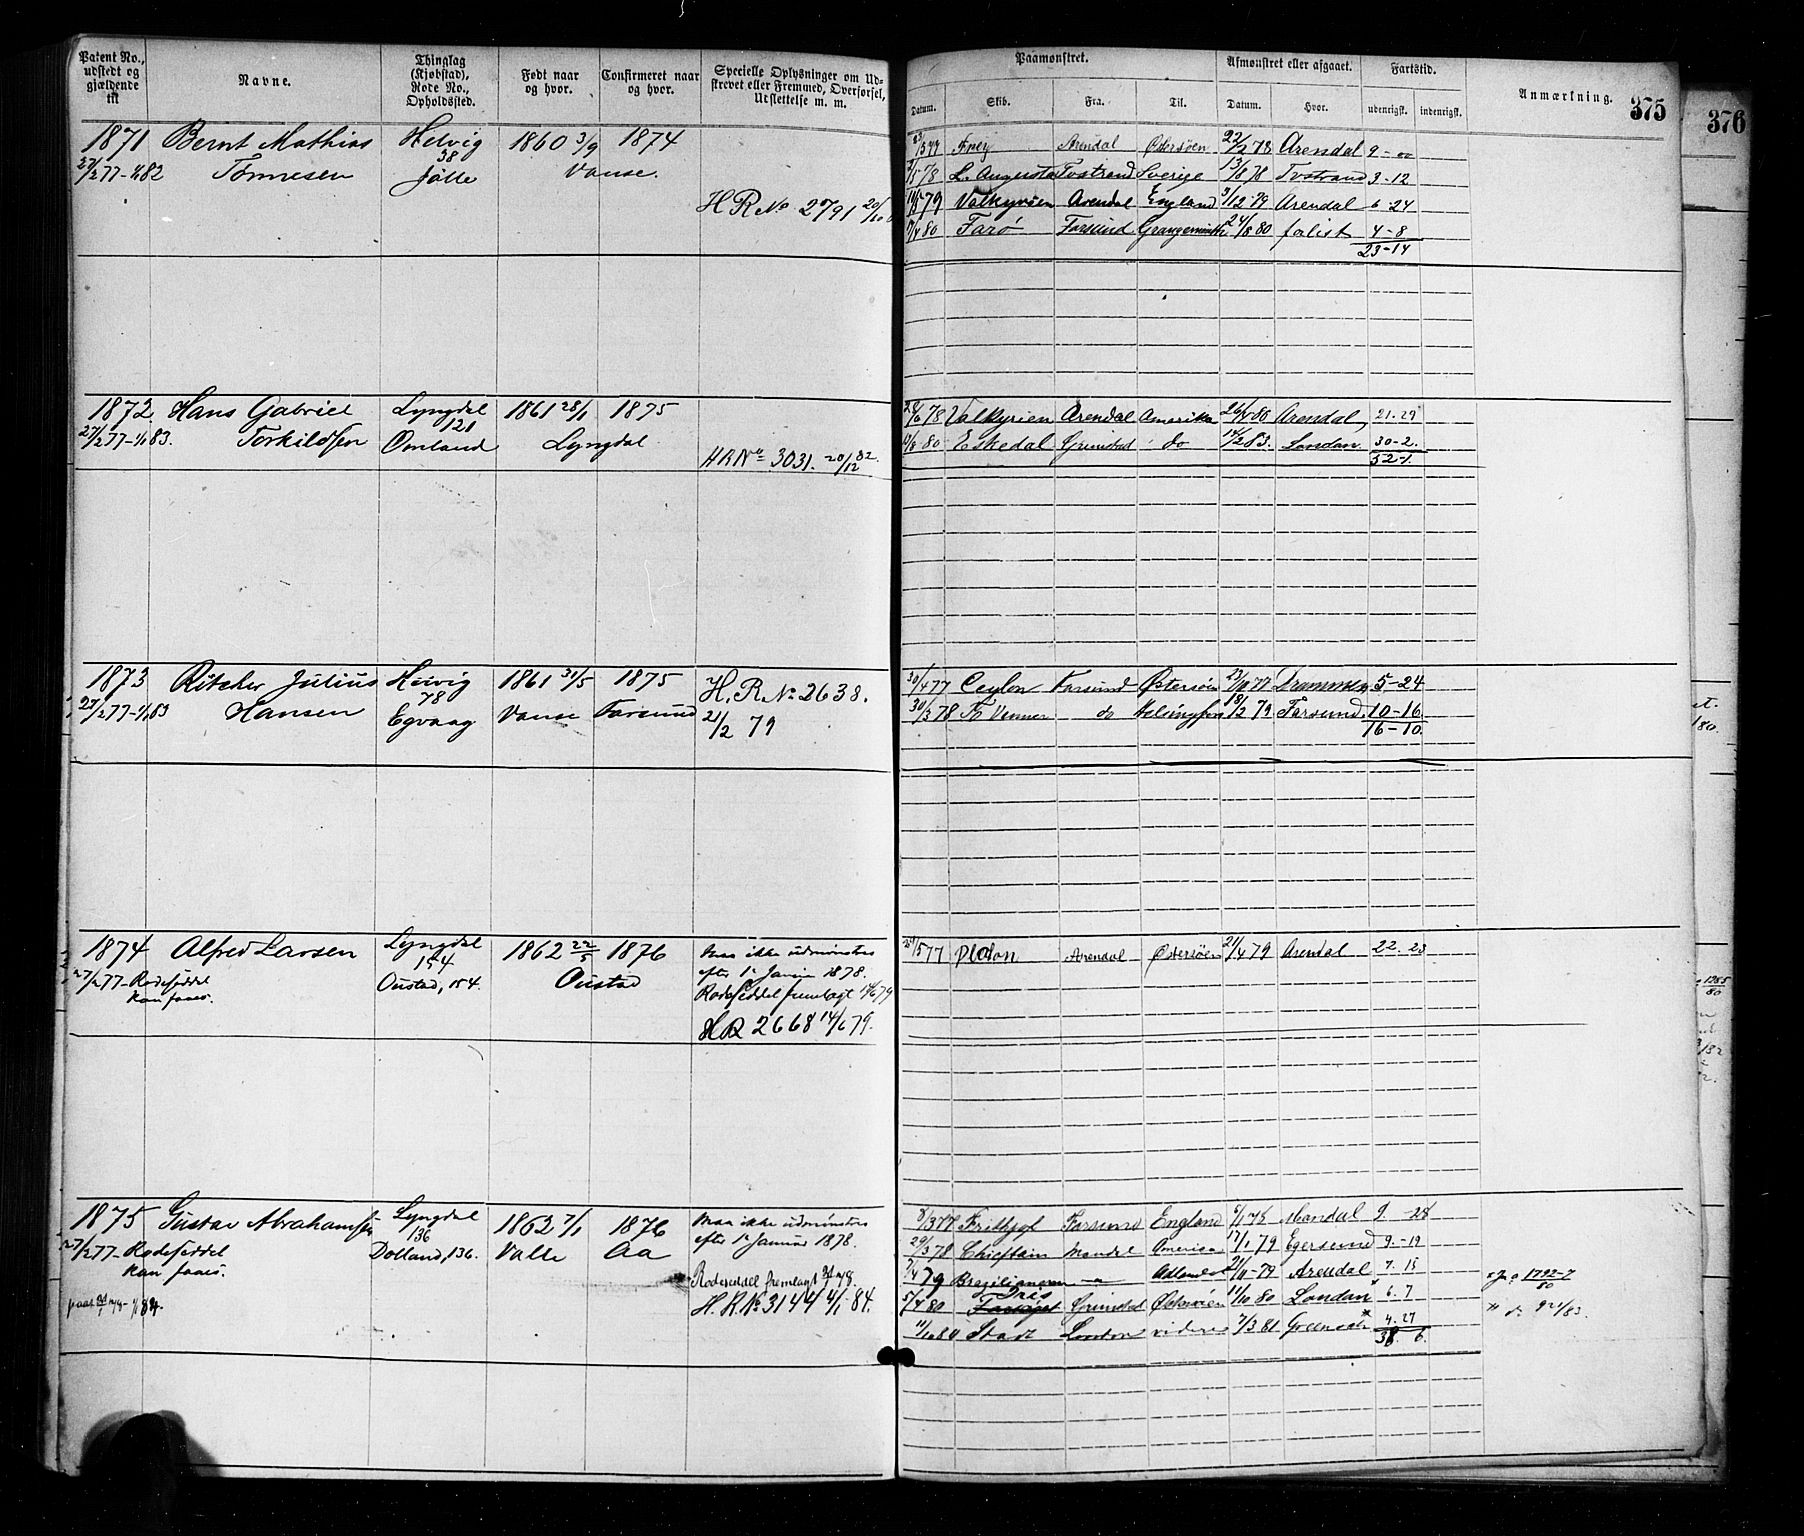 Patent No., udstedt og gjældende til
Navne.
Thinglag (Kjøbstad), Rode No., Opholdssted.
Født naar og hvor.
Confirmeret naar og hvor.
Specielle Oplysninger om Udskrevet eller Fremmed, Overførsel, Udslettelse m. m.
Paamønstret.
Datum.
Skib.
Fra.
Til.
Afmønstret eller afgaaet.
Datum.
Hvor.
Fartstid.
udenrigsk.
indenrigsk.
Anmærkning.
375
376
1871 Bernt Mathias Helvig 1860 3/9 1874
27/2 77-1/1 82 Tønnesen 38 Jølle Vanse.
H R No 2791
Frey Arendal Østersøen 78 Arendal 9-00
78 L. Augusta Tvstrand Sverige 13/8 78 Tvstrand 3-12
79 Valkyrien Arendal England 3/12-79 Arendal 6-24
80 Farø Farsund Grangemouth 24/8 80 forlist 4-8
23-14
1872 Hans Gabriel Lyngdal 1861 28/1 1875
27/2 77-1/1 83. Torkildsen 121 Omland Lyngdal
HR No 3031. 20/12 82.
78 Valkyrien Arendal Amerika 80 Arendal 21-29
80 Eskedal Grimstad do 83. London 30-2.
52-1.
1873 Ritcher Julius Helvig 1861 31/5 1875 H. R. No 2638.
27/2 77-1/1 83 Hansen 78 Egvaag Vanse Farsund 21/2 79
30/4 77 Ceylon Farsund Østersøen 77 Drammen 5-24
30/3 78 Fr Venner do Helsingfors 18/2 79 Farsund 10-16
16-10.
1874 Alfred Larsen Lyngdal 1862 22/5 1876 Maa ikke udmønstres
27/2 77-Rodeseddel 154 Oustad efter 1ste Januar 1878.
kan faaes. Oustad, 154. Rodeseddel fremlagt 14/6 79
H R 2668 14/6 79.
5 77 Platon Arendal Østersøen 21/4 79 Arendal 22. 23
1875 Gustav Abrahamsen Lyngdal 1862 7/1 1876 Maa ikke udmønstres
27/2 77-Rodeseddel 136 Valle Aa efter 1ste Januar 1878.
kan faaes. Dolland, 136.
Rodeseddel fremlagt 78.
H. R. No 3144 4/1 84.
8/3 77 Fridtjof Farsund England Mandal 9. -28
29/3 78 Chieftain Mandal Amerika 17/1 79 Egersund 9-19
7/4 79 Brazilianeren 21/11-79 Arendal 7. 15
Iris
5/4 80 Grimstad Østersøen 11/10 80 London 6. 7
11/10 80 Stadt London videre 7/3 81 Greenock 4. 27
38. 6.